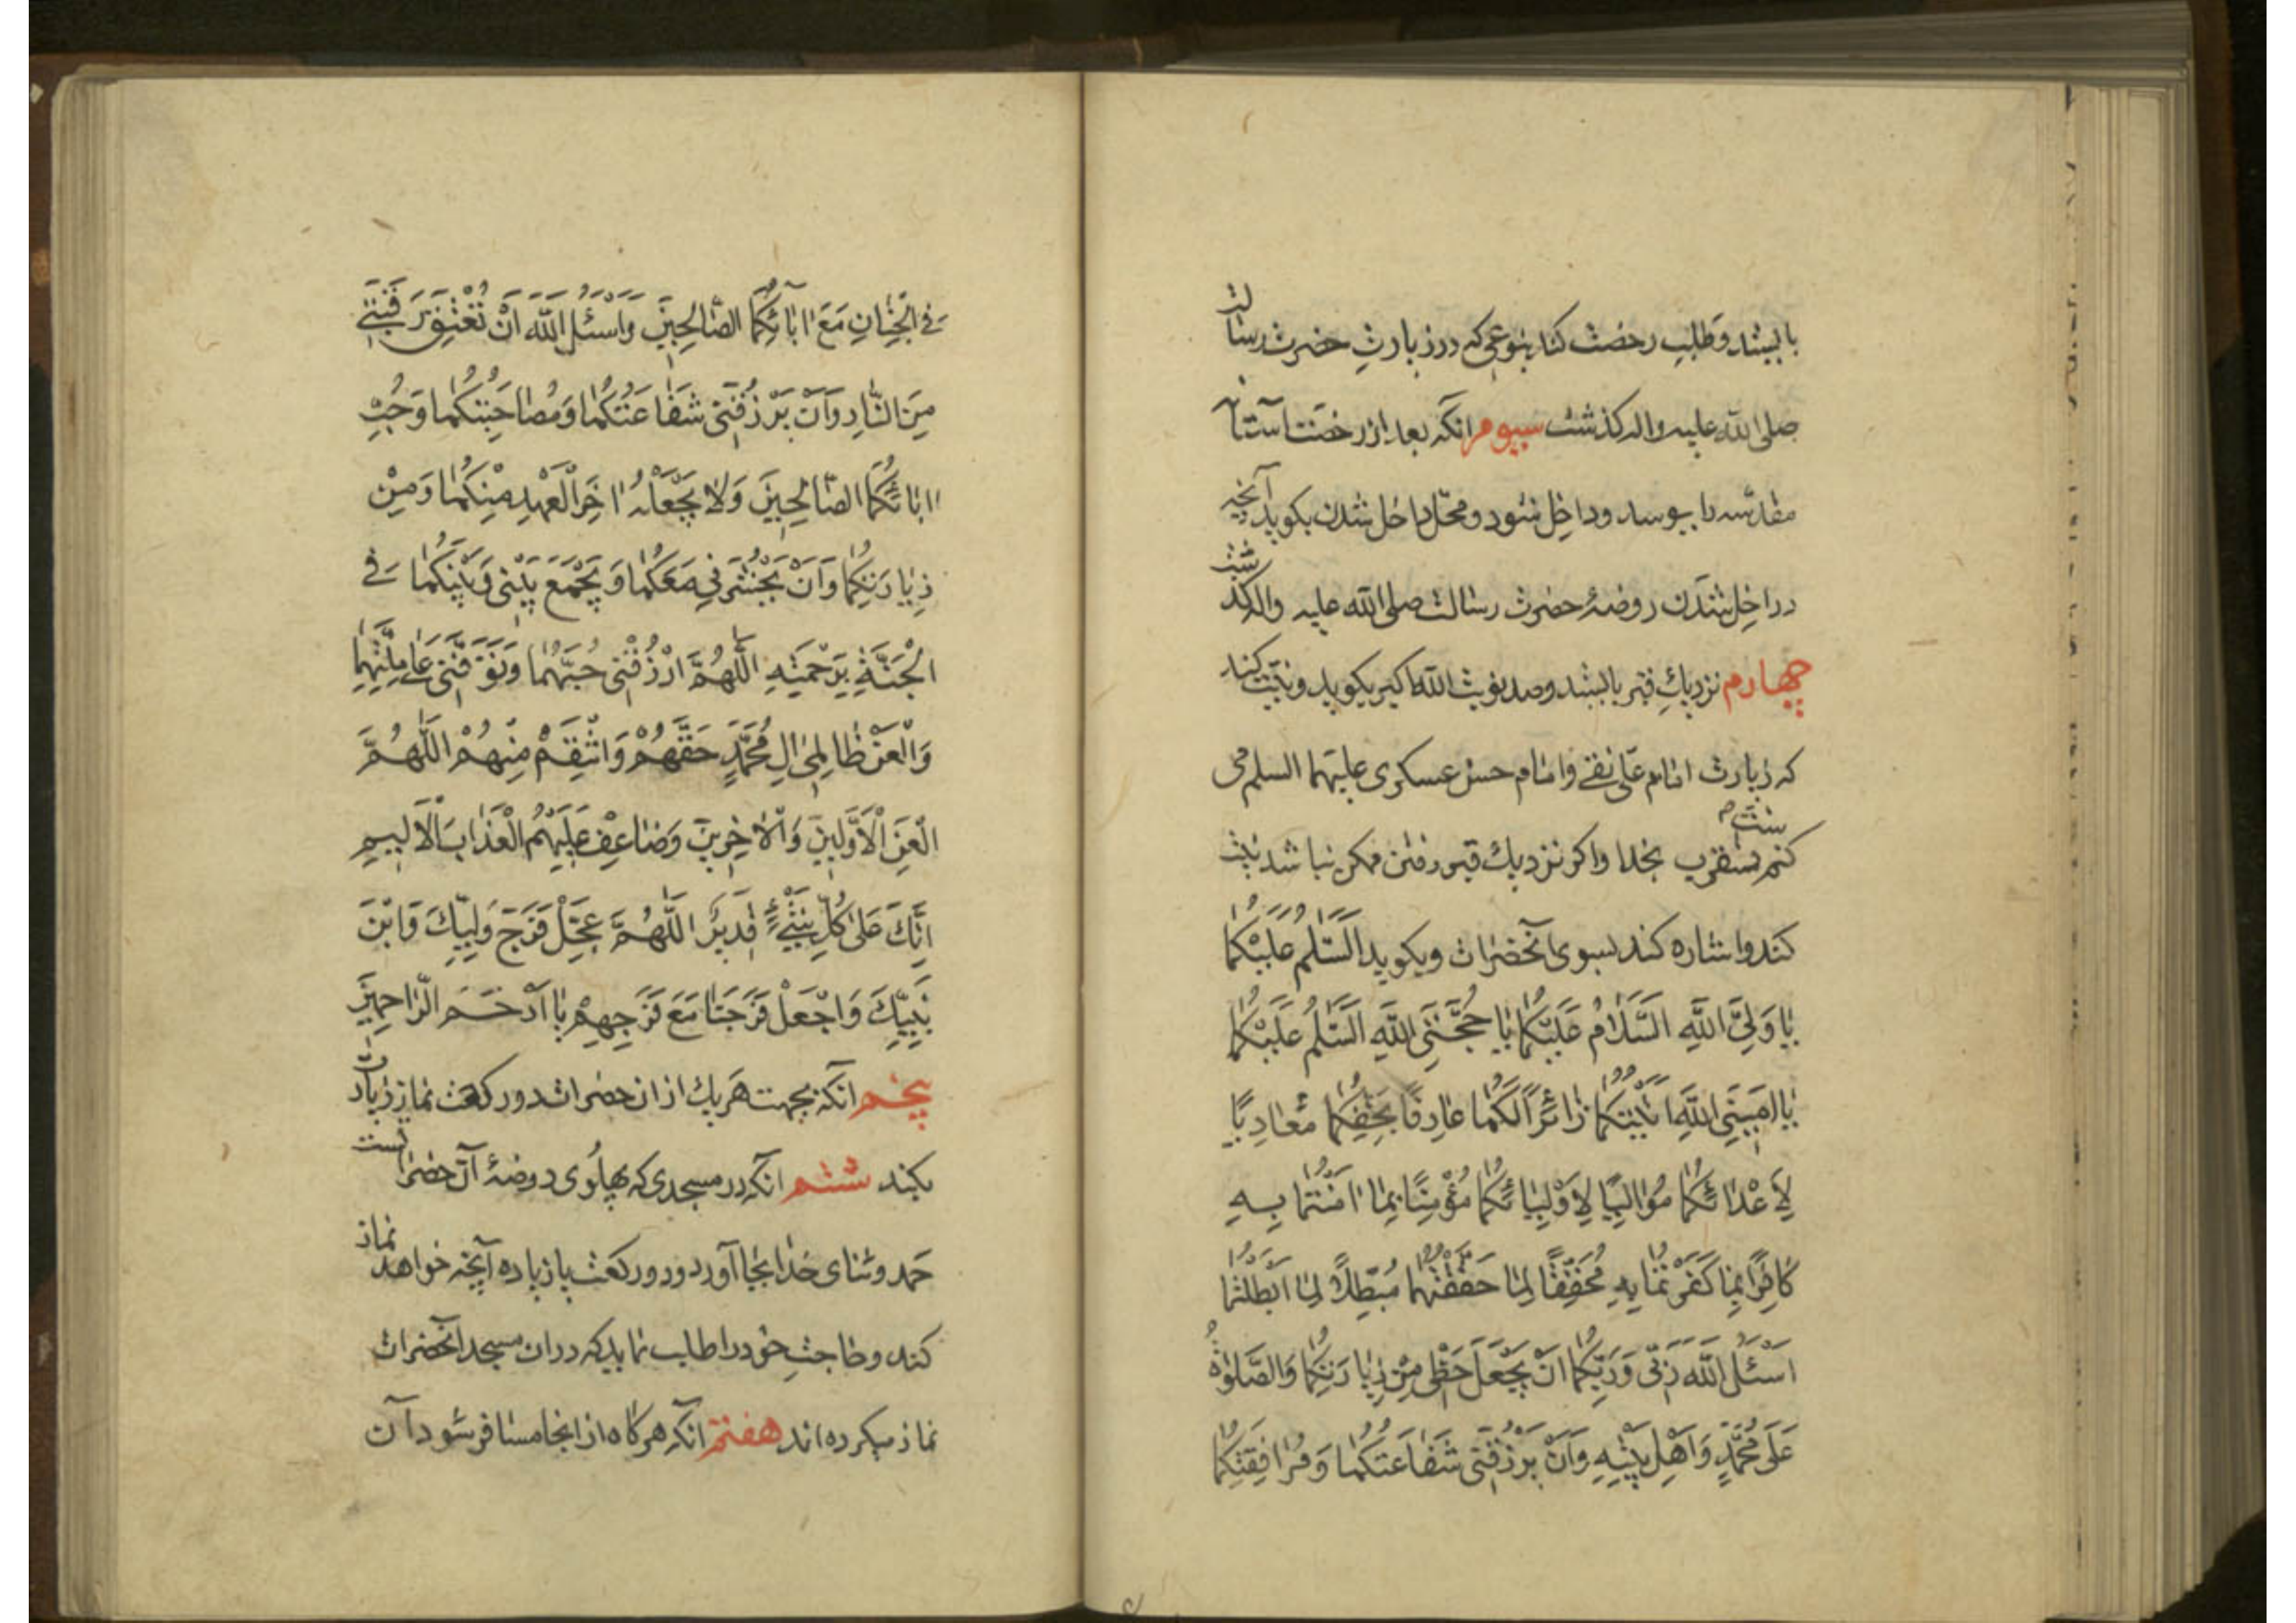 بایستد و طلب رخصت کند بنوعی که در زیارت حضرت رسالت
صلی الله علیه واله کذشت سیوم انکه بعد از رخصت آستانه
مقدسه را ببوسد و داخل شود و محل داخل شدن بکوید آنچه
در داخل شدن روضهٔ حضرت رسالت صلی الله علیه واله کذشت
چهارم نزدیک قبر بایستد و صد نوبت الله اکبر بکوید و نیت کند
که زیارت امام علی نقی و امام حسن عسکری علیهما السلم می
کنم سنت تقرب بخدا واکر نزدیک قبر رفتن ممکن نباشد نیت
کند و اشاره کند بسوی آنحضرات و بکوید اَلسَّلمُ عَلَیْکُما
یا وَلِیَّ اللَّهِ اَلسَّلامُ عَلَیْکُما یا حُجَّتَیِ اللَّهِ اَلسَّلمُ عَلَیْکُما
یا اَمینَیِ اللَّهِ اَتَیْتُکُما زائِرًا لَکُما عارِفًا بِحَقِّکُما مُعادِیًا
لِاَعْدائِکُما مُوالِیًا لِاَوْلِیائِکُما مُؤْمِنًا بِما امَنْتُما بِهِ
کافِرًا بِما کَفَرْتُما بِهِ مُحَقِّقًا لِما حَقَّقْتُما مُبْطِلًا لِما اَبْطَلْتُما
اَسْئَلُ اللَّهَ رَبّی وَرَبَّکُما اَنْ یَجْعَلَ حَظّی مِنْ زِیارَتِکُما وَالصَّلو�ةُ
عَلی مُحَمَّدٍ وَاَهْلِ بَیْتِهِ وَاَنْ یَرْزُقَنی شَفاعَتَکُما وَمُرافَقَتَکُما
فِی الْجِنانِ مَعَ ابائِکُمَا الصّالِحینَ وَاَسْئَلُ اللَّهَ اَنْ یُعْتِقَ رَقَبَتی
مِنَ النّارِ وَاَنْ یَرْزُقَنی شَفاعَتَکُما وَمُصاحَبَتَکُما وَحُبَّ
ابائِکُمَا الصّالِحینَ وَلا یَجْعَلَهُ اخِرَ الْعَهْدِ مِنْکُما وَمِنْ
زِیارَتِکُما وَاَنْ یَحْشُرَنی مَعَکُما وَیَجْمَعَ بَیْنی وَبَیْنَکُما فِی
الْجَنَّةِ بِرَحْمَتِهِ اَللّهُمَّ ارْزُقْنی حُبَّهُما وَتَوَفَّنی عَلی مِلَّتِهِما
وَالْعَنْ ظالِمی الِ مُحَمَّدٍ حَقَّهُمْ وَانْتَقِمْ مِنْهُمْ اَللّهُمَّ
الْعَنِ الْاَوَّلینَ وَالْاخِرینَ وَضاعِفْ عَلَیْهِمُ الْعَذابَ الْاَلیمِ
اِنَّکَ عَلی کُلِّ شَیْءٍ قَدیرٌ اَللّهُمَّ عَجِّلْ فَرَجَ وَلِیِّکَ وَابْنَ
نَبِیِّکَ وَاجْعَلْ فَرَجَنا مَعَ فَرَجِهِمْ یا اَرْحَمَ الرّاحِمینَ
پنجم آنکه بجهت هر یک از ان حضرات دو رکعت نماز زیارت
بکند ششم آنکه در مسجدی که پهلوی روضهٔ آن حضراتست
حمد و ثنای خدا بجا آورد و دو رکعت یا زیاده آنچه خواهد نماز
کند و حاجت خود را طلب نماید که در ان مسجد آنحضرات
نماز میکرده اند هفتم آنکه هرکاه از انجا مسافر شود آن